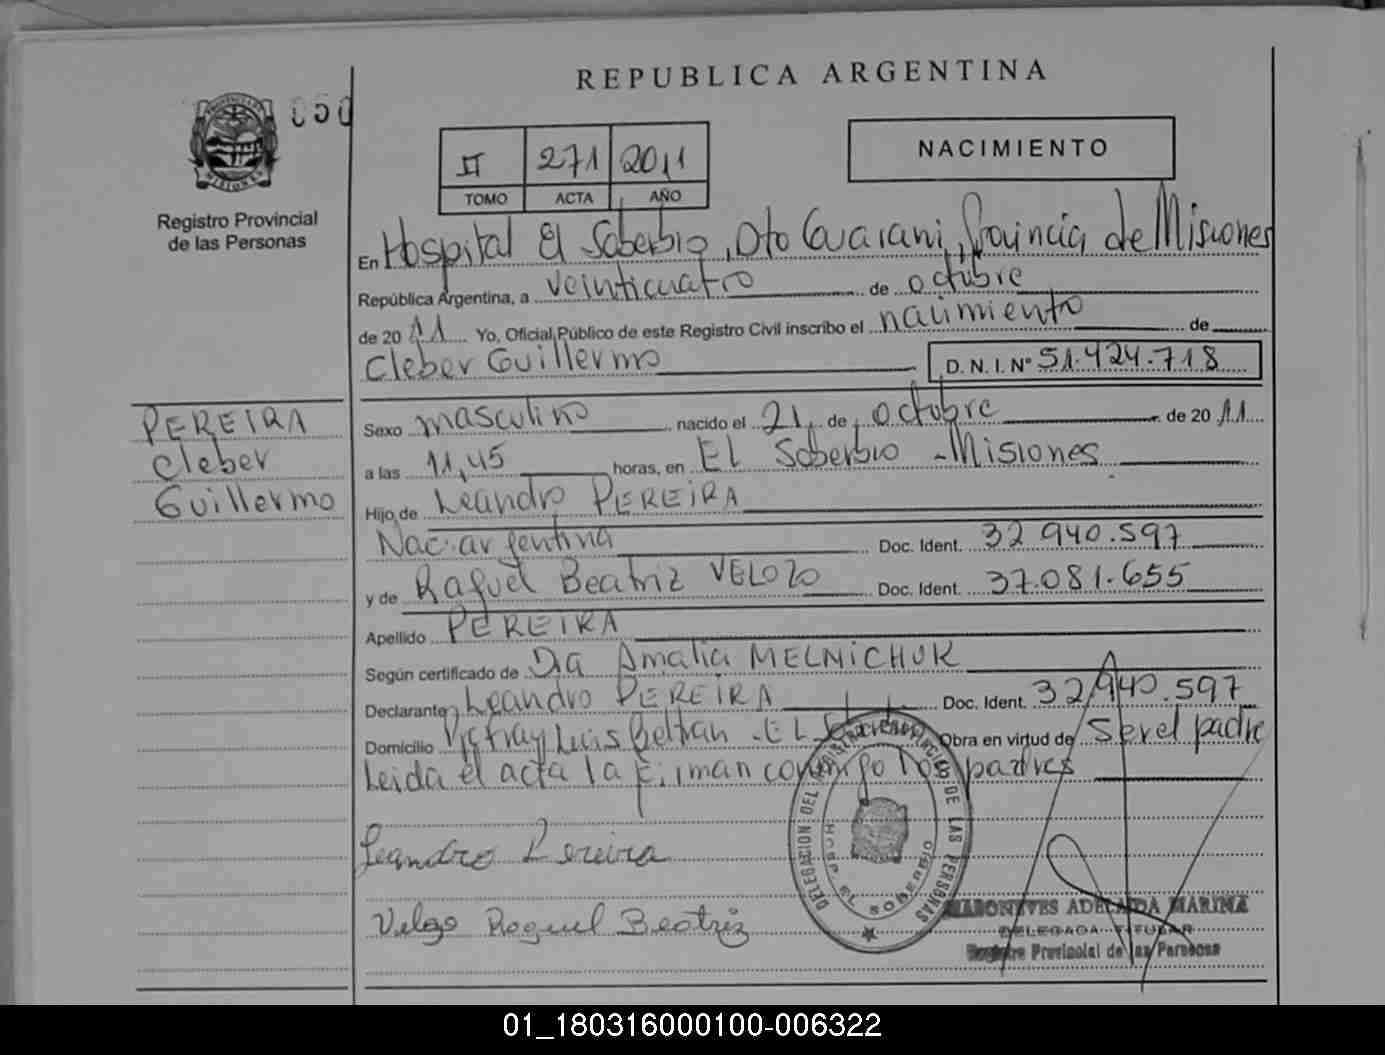 REPUBLICA ARGENTINA
PROVINCIA DE
MISIONES
Registro Provincial
de las Personas
II 271 2011
TOMO ACTA AÑO
NACIMIENTO
En Hospital El Soberbio, Dto Guarani, Provincia de Misiones
República Argentina, a veinticuatro de octubre
de 2011 Yo, Oficial Público de este Registro Civil inscribo el nacimiento de
Cleber Guillermo D.N.I. Nº 51.424.718
PEREIRA
Cleber
Guillermo
Sexo masculino nacido el 21 de octubre de 2011
a las 11,45 horas, en El Soberbio - Misiones
Hijo de Leandro PEREIRA
Nac. argentina Doc. Ident. 32 940.597
y de Raquel Beatriz VELOZO Doc. Ident. 37.081.655
Apellido PEREIRA
Según certificado de Dra Amalia MELNICHUK
Declarante Leandro PEREIRA Doc. Ident. 32940.597
Domicilio Luis Beltran - EL Obra en virtud de Ser el padre
Leida el acta la firman conmigo los padres
Leandro Pereira
Velozo Raquel Beatriz
DELEGACION DEL REGISTRO PROVINCIAL DE LAS PERSONAS
HOSP. EL SOBERBIO
ADELAIDA MARINA
DELEGADA TITULAR
Registro Provincial de las Personas
01_180316000100-006322